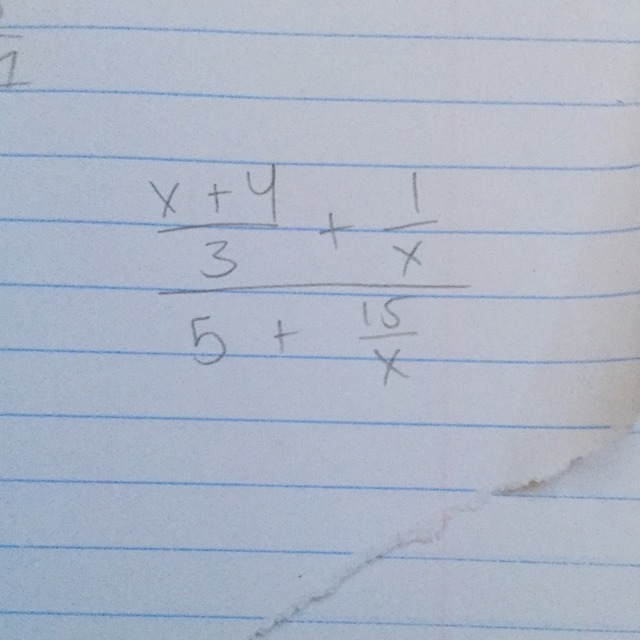 x + 4 / 3 + 1 / x
5 + 15 / x